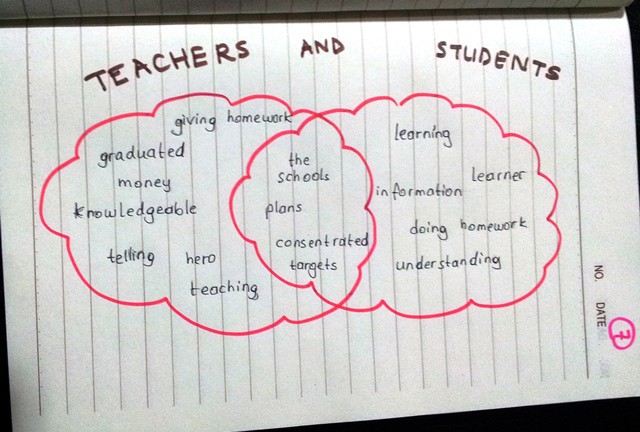 TEACHERS AND STUDENTS
giving homework
graduated
money
knowledgeable
telling
hero
teaching
the
schools
plans
consentrated
targets
learning
learner
information
doing homework
understanding
NO.
DATE
7